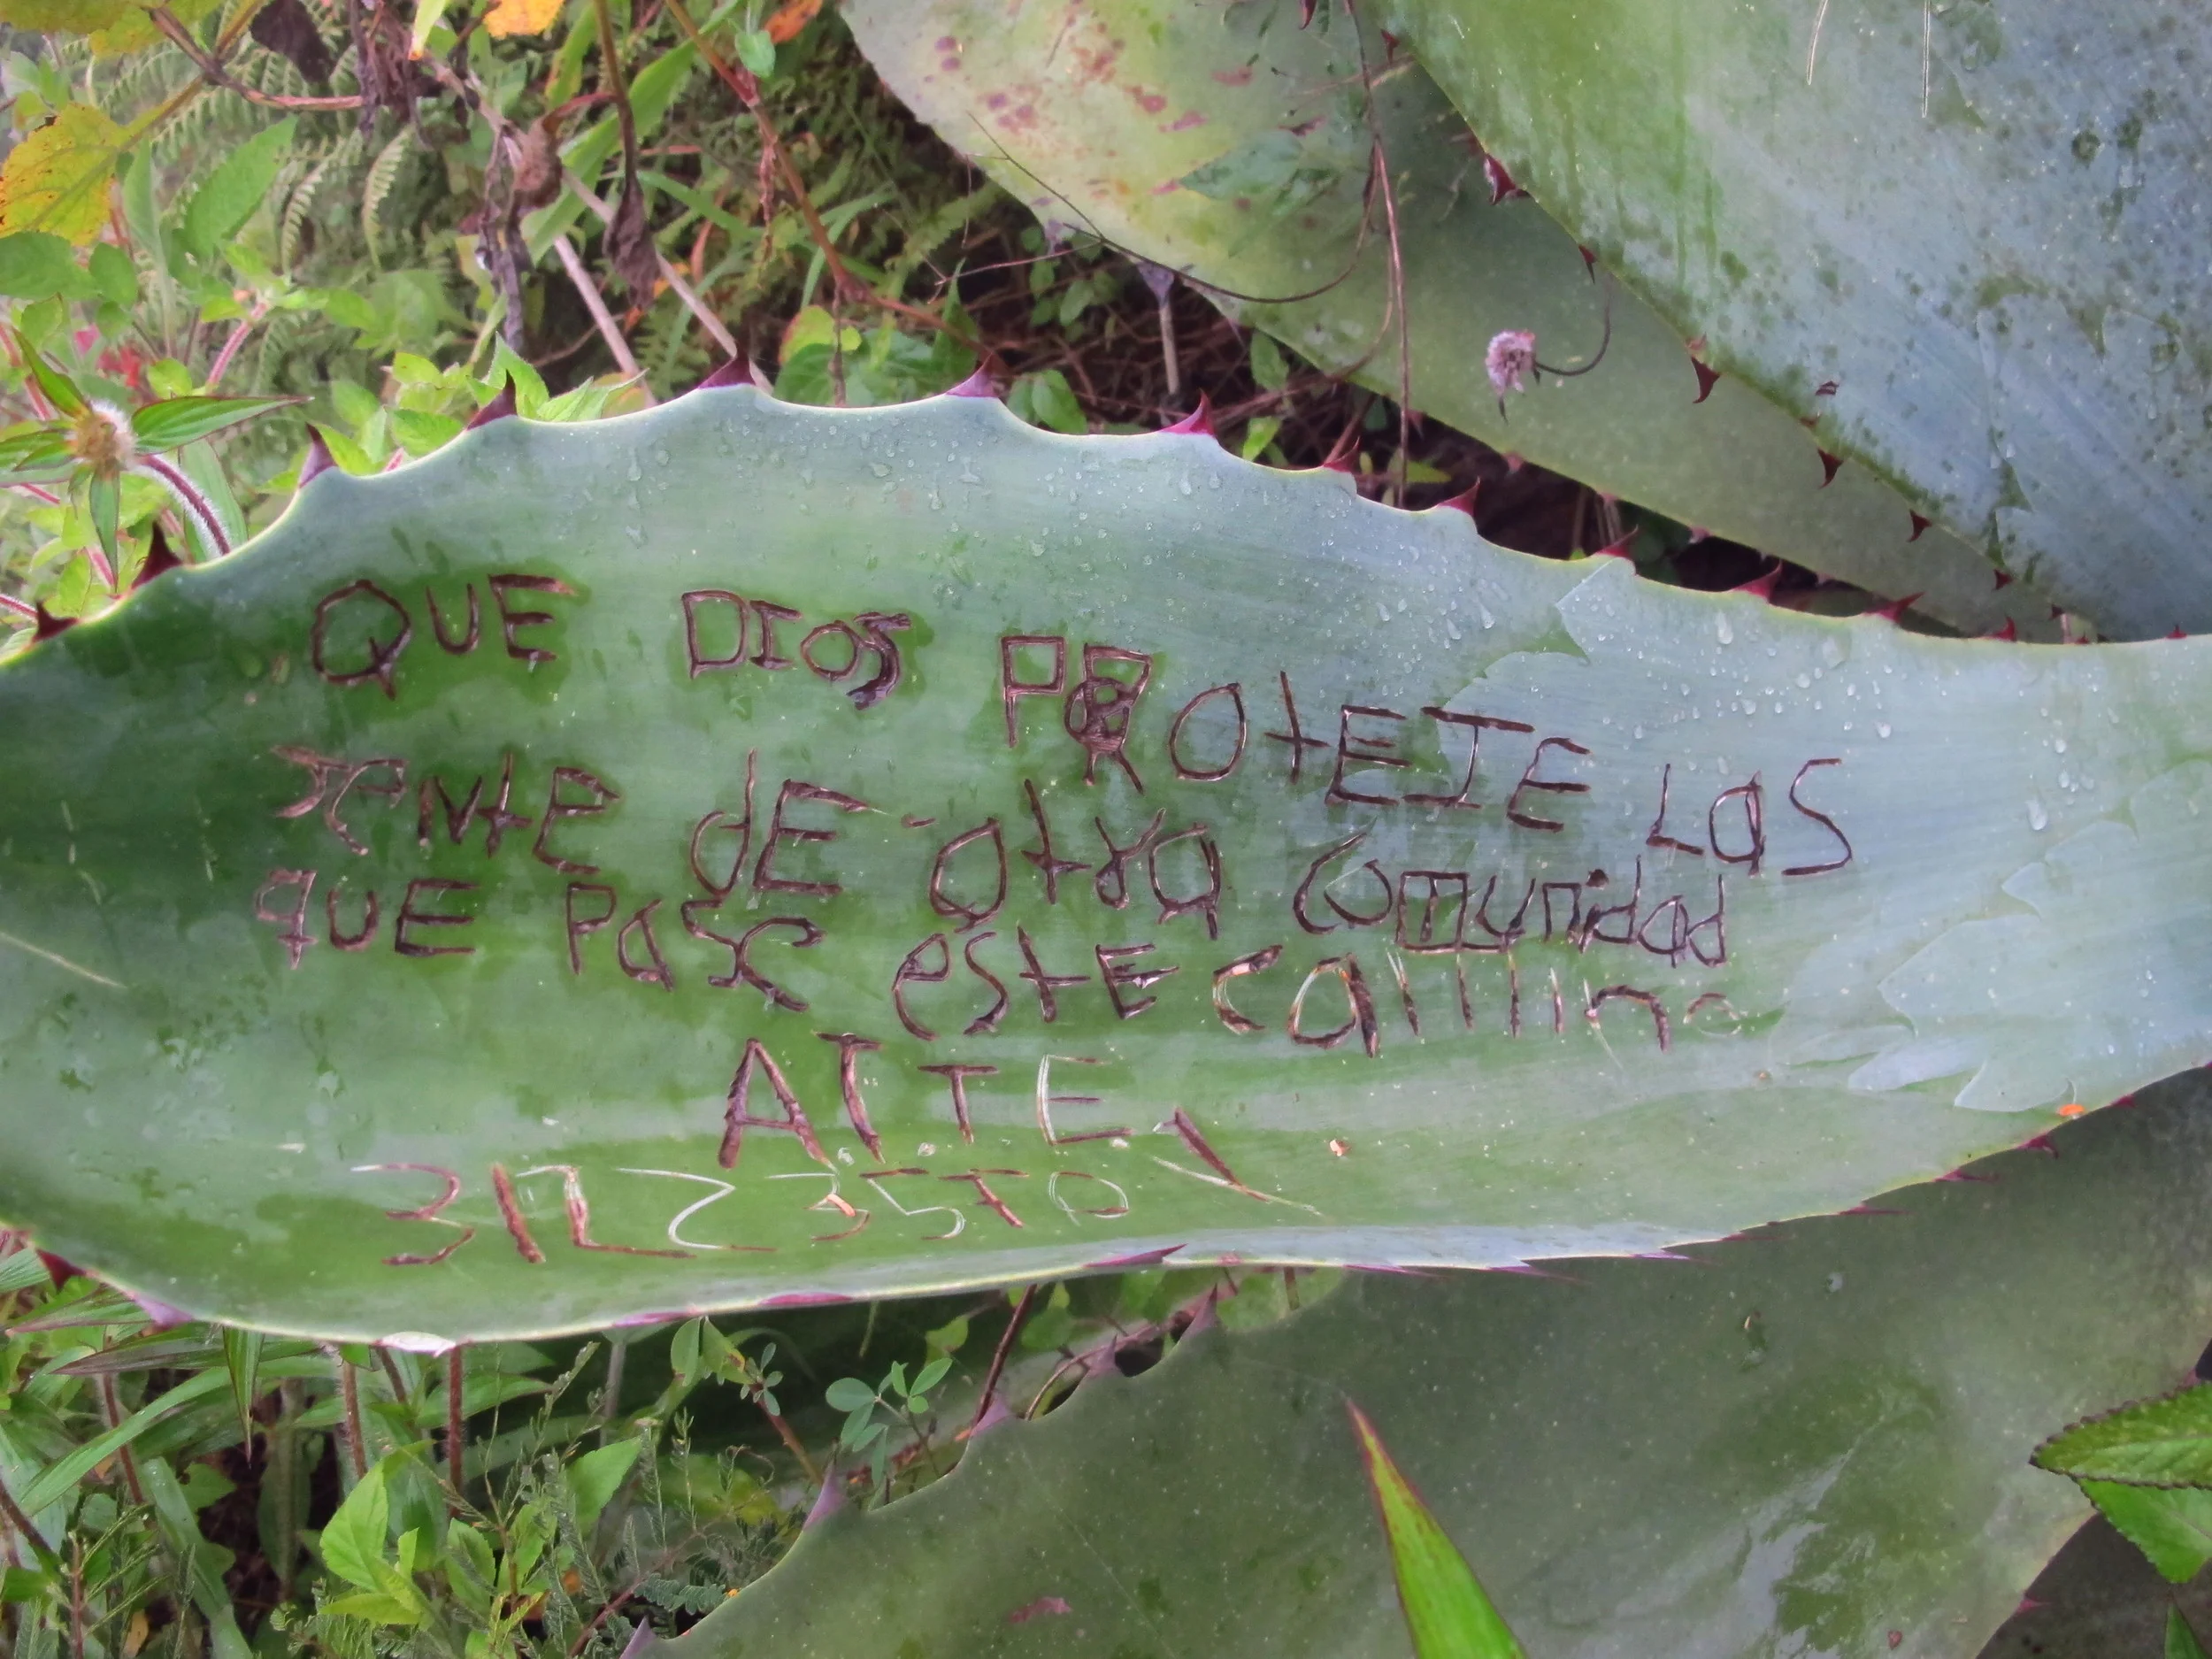 QUE DIOS PROtEJE LaS
JeNte dE otra comunidad
quE Pase estE camino